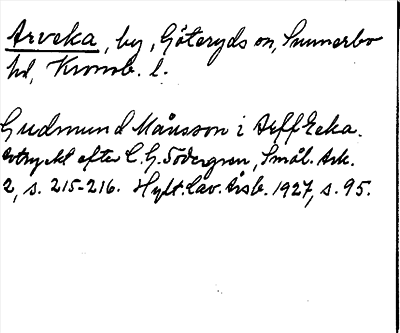 Arveka, by, Göteryds sn, Sunnerbo
hd, Kronob. l.
Gudmund Månsson i Arffueka.
Avtryckt efter C. G. Södergren, Smål. Ark.
2, s. 215-216. Hylt.Cav. Årsb. 1927, s. 95.